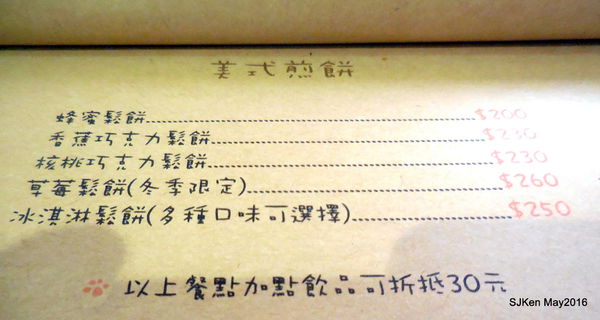 美式煎餅
蜂蜜鬆餅 $200
香蕉巧克力鬆餅 $230
核桃巧克力鬆餅 $230
草莓鬆餅(冬季限定) $260
冰淇淋鬆餅(多種口味可選擇) $250
以上餐點加點飲品可折抵30元
SJKen May2016